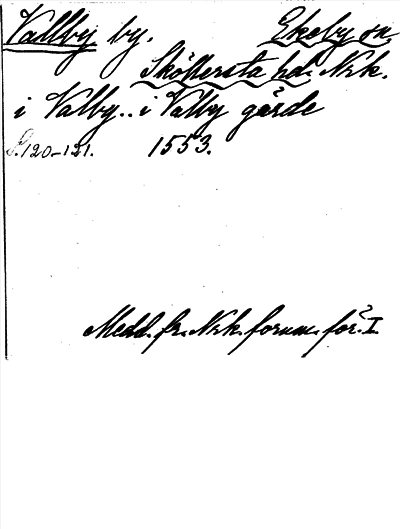 Vallby by. Ekeby sn.
Sköllersta hd. Nrk.
i Valby.. i Valby gärde
S. 120-121. 1553.
Medd. fr. Nrk. fornm. för. I